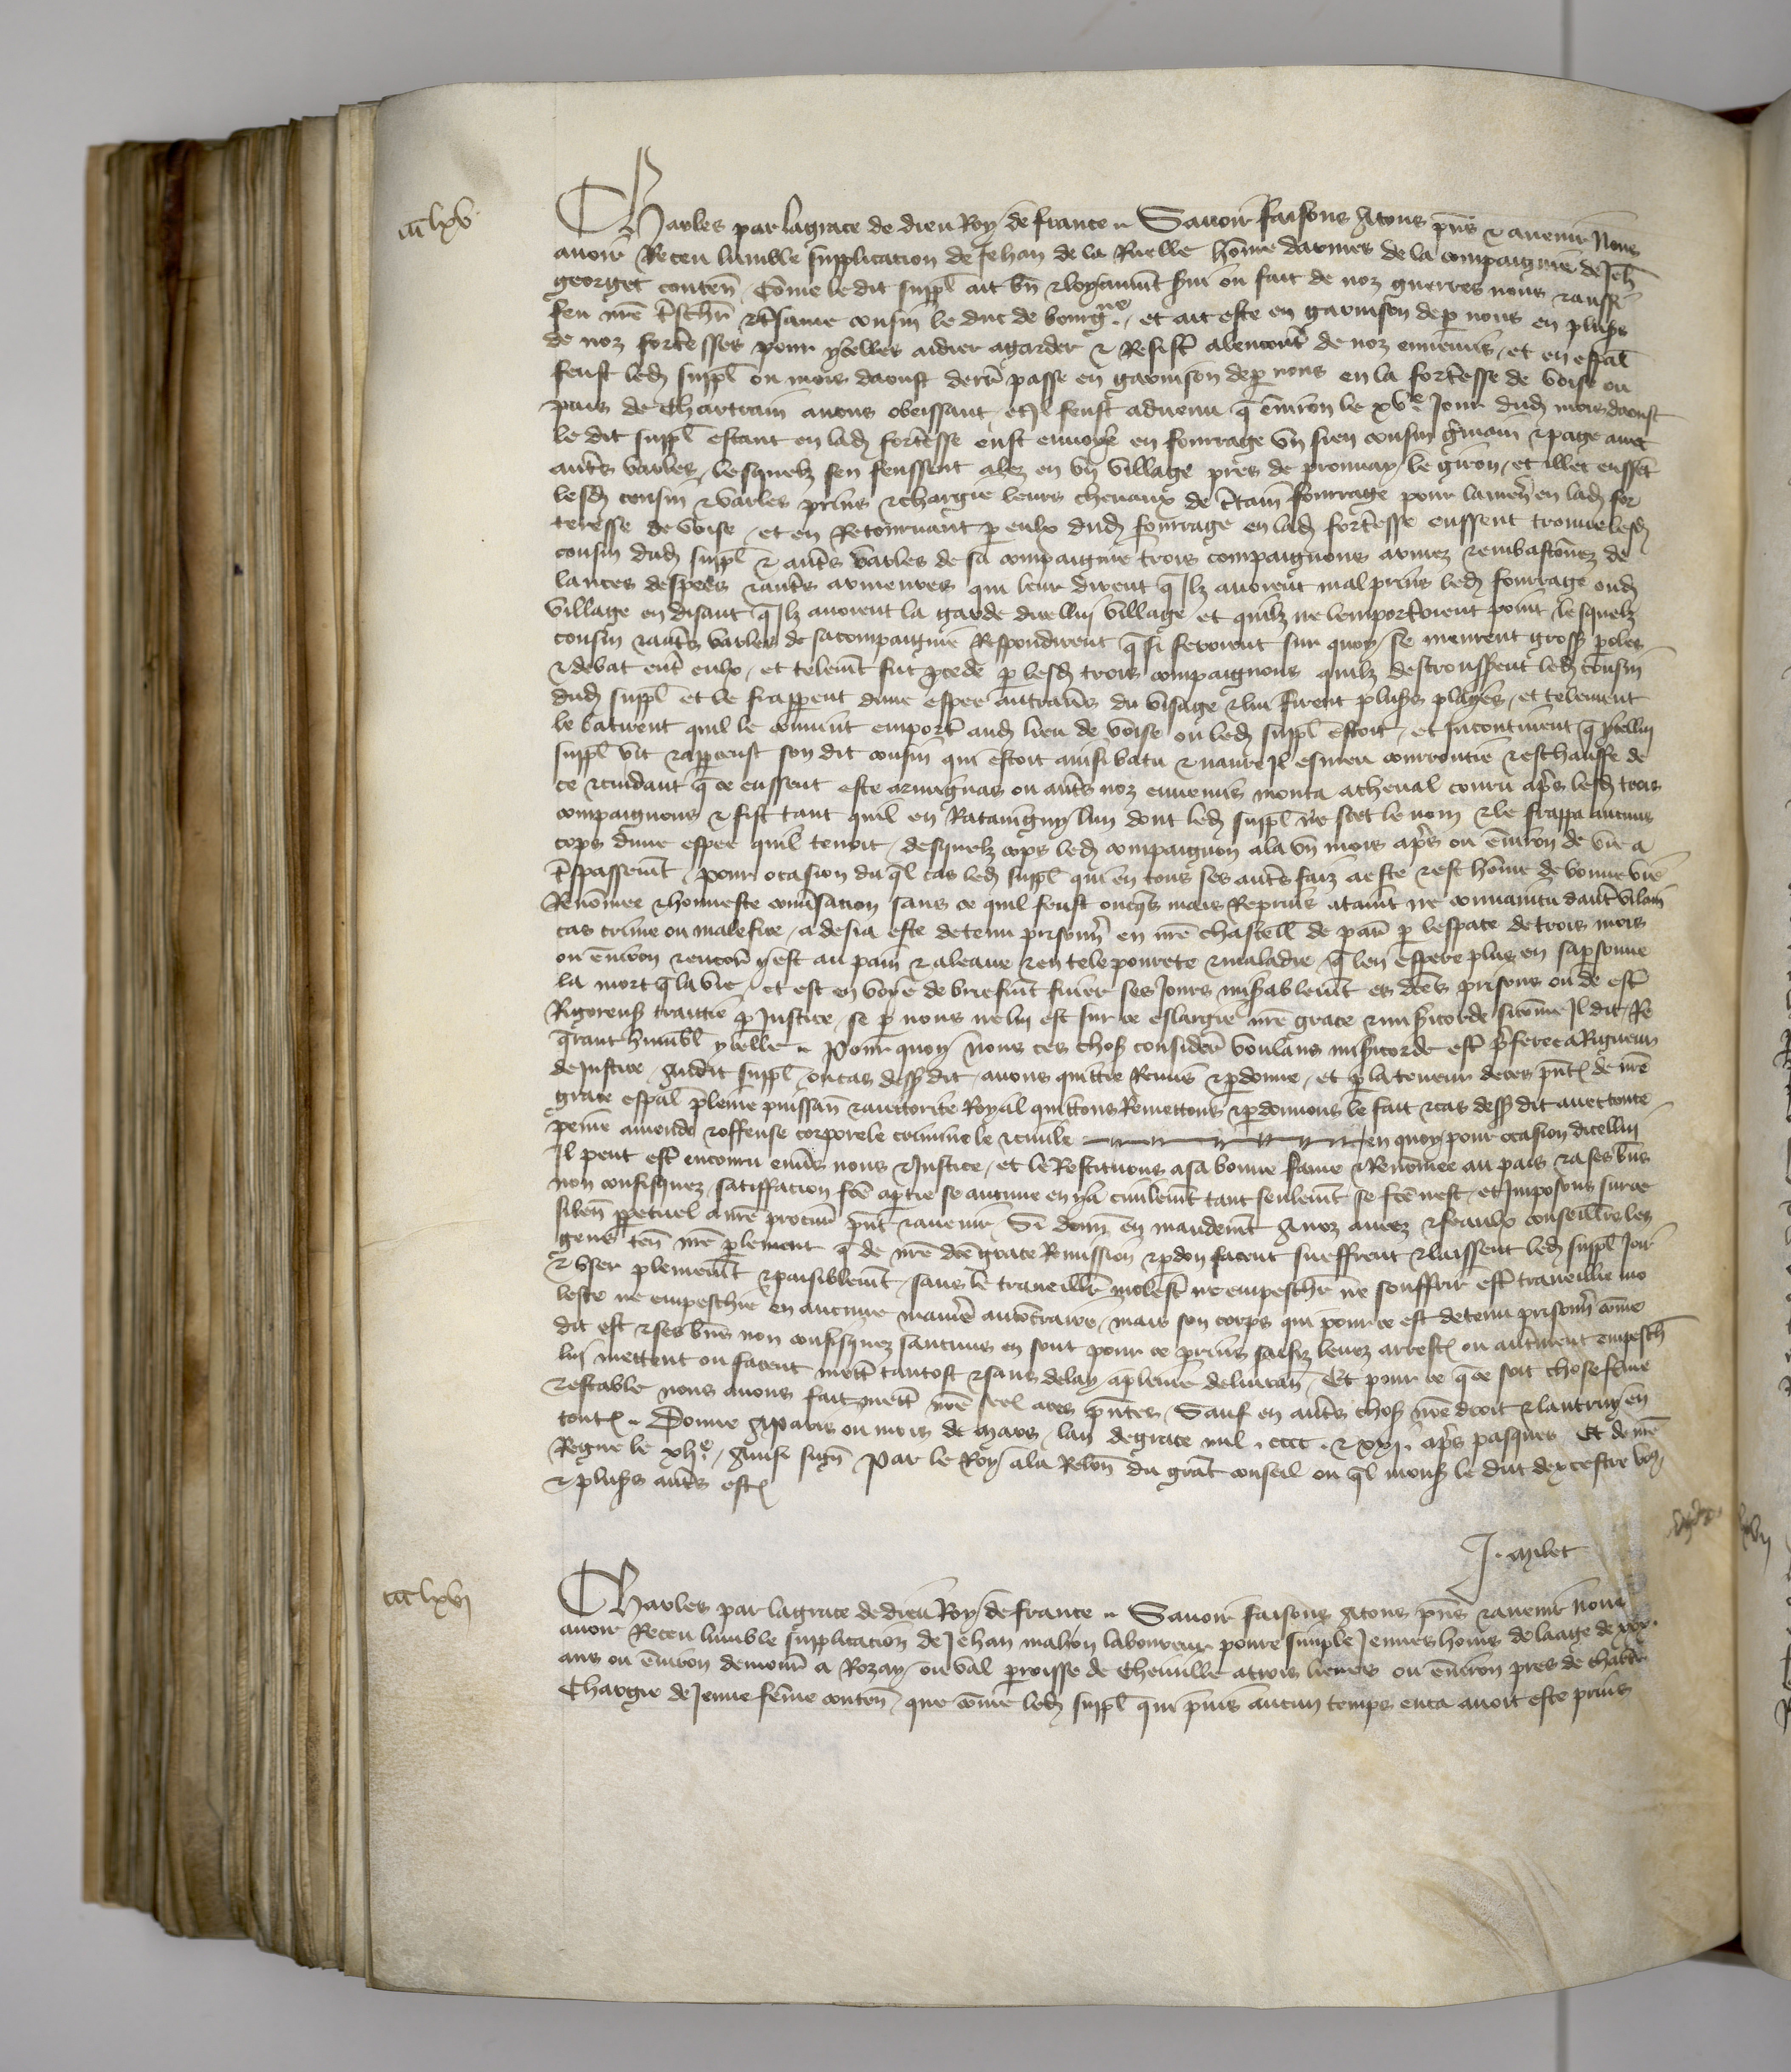 iiiᶜ lxv
Charles par la grace de dieu Roy de france .. Savoir faisons A tous pn̄s & avenir Nous
avoir Receu lumble supplicacion de Jehan de la Ruelle hom̄e darmes de la compaignie de Jeh̄
georget conten̄ / Com̄e le dit suppl̄ ait bn̄ & loyaum̄t s̄vi ou fait de noz guerres nous & aussi
feu nr̄e t̄schr̄ & t̄same cousin le duc de bourgⁿᵉ / et ait este en garnison de p̱ nous en plus̄s
de noz fort̄esses pour ycelles aidier a garder & Resist̄ alencont̄ de noz ennemis / et en esp̄al
feust led̄ suppl̄ ou mois daoust dern̄ passe en garnison de p̱ nous en la fort̄esse de Voise ou
pais de Chartrain a nous obeissant / et Il feust advenu q̄ env̄iron le xvᵉ Jour dud̄ mois daoust
le dit suppl̄ estant en lad̄ fort̄esse eust envoye en fourrage vn sien cousin ḡmain & page avec
aut̄s varles / lesquelz sen feussent alez en vn village pres de prunay le giron / et illec eussēt
lesd̄ cousin & varles prins & chargie leurs chevaux de c̄tain fourrage pour lamen̄ en lad̄ for
teresse de Voise / et en Retournant p̱ eulx dud̄ fourrage en lad̄ fort̄esse eussent trouve lesd̄
cousin dud̄ suppl̄ & aut̄s varles de sa compaignie trois compaignons armez & embastōnez de
lances despees & aut̄s armeures qui leur dirent q̄ Ilz avoient mal prins led̄ fourrage oud̄
village en disant q̄ Ilz avoient la garde dicellui village et quilz ne lemport̄oient point lesquelz
cousin & aut̄s varles de sa compaignie Respondirent q̄ si feroient sur quoy se meurent gross̄ p̱oles
& debat ent̄ eulx / et telem̄t fut p̱cede p̱ lesd̄ trois compaignons quilz destrousserent led̄ cousin
dud̄ suppl̄ et le frapperent dune espee au trav̄s du visage & lui firent plus̄s playes / et telement
le batirent quil le convint emport̄ aud̄ lieu de Voise ou led̄ suppl̄ estoit / et Incontinent q̄ ycellui
suppl̄ vit & apperceust son dit cousin qui estoit ainsi batu & navre Il esmeu courroucie & eschauffe de
ce & cuidant q̄ ce eussent este armignas ou aut̄s noz ennemis monta a cheval couru ap̄s lesd̄ trois
compaignons & fist tant quil en Rataingny lun dont led̄ suppl̄ ne scet le nom & le frappa aucuns
cops dune espee quil tenoit / desquelz cops led̄ compaignon ala vn mois ap̄s ou env̄iron de vie a
t̄spassem̄t / pour ocasion du q̄l cas led̄ suppl̄ qui en tous ses aut̄s faiz a este & est hom̄e de bonne vie
Renōmee & honneste conv̄sacion sans ce quil feust oncq̄s mais Reprins ataint ne convaincu daut̄ vilain
cas crime ou malefice / a desia este detenu prisonn̄ en nr̄e chastell̄ de par̄ p̱ lespace de trois mois
ou env̄iron & encor̄ y est au pain & a leaue & en tele povrete & maladie q̄ len espere plus en sa p̱sonne
la mort q̄ la vie / et est en voye de briefm̄t finer ses Jours mis̄ablem̄t es dc̄es prisons ou de est̄
Rigoreus̄ traittie p̱ Justice / se p̱ nous ne lui est sur ce eslargie nr̄e grace & mis̄icorde sicom̄e Il dit / Re
q̄rant humbl̄ ycelle .. Pour quoy nous ces chos̄ consider̄ voulans mis̄icorde est̄ p̄feree a Rigueur
de Justice / Audit suppl̄ ou cas dess̄ dit / avons quittie Remis & p̱donne / et p̱ la teneur de ces pn̄t̄ de nr̄e
grace esp̄al pleine puissan̄ & auctorite Royal quittons Remettons & p̱donnons le fait & cas dess̄ dit avec toute
peine amende & offense corporele criminele & civile en quoy pour ocasion dicellui
Il peut est̄ encouru env̄s nous & Justice / et le Restituons a sa bonne fame & Renōmee au pais & a ses bn̄s
non confisquez / satisfacion fc̄e a p̱tie se aucune en y a civilem̄t tant seulem̄t se fc̄e nest / et Imposons sur ce
silen̄ p̱petuel a nr̄e procur̄ pn̄t & avenir / Si donn̄ en mandem̄t A noz amez & feaulx conseill̄rs les
gens ten̄ nr̄e p̱lement q̄ de nr̄e dc̄e grace Remission & p̱don facent sueffrent & laissent led̄ suppl̄ Joir
& vser plenem̄t & paisiblem̄t / sans le traveill̄r molest̄ ne empeschr̄ ne souffrir est̄ traveillie mo
leste ne empeschie en aucune manie͛ au cōtraire / mais son corps qui pour ce est detenu prisonn̄ com̄e
dit est & ses bn̄s non confisquez saucuns en sont pour ce prins saisiz levez arrest̄ ou autrement empesch̄
lui mettent ou facent mett̄ tantost & sans delay a pleine delivran̄ / Et pour ce q̄ ce soit chose ferme
& estable nous avons fait mett̄ nr̄e seel a ces pn̄tes / Sauf en aut̄s chos̄ nr̄e droit & lautruy en
tout̄ .. Donne A Paris ou mois de mars / lan de grace mil . cccc . & xxi . ap̄s pasques Et de nr̄e
Regne le xlijᵉ / Ainsi sign̄ Par le Roy a la Relōn du grāt conseil ou q̄l mons̄ le duc dexcestre vo9
& plus̄s aut̄s est̄
J . Milet
iiiᶜ lxvj
Charles par la grace de dieu Roy de france .. Savoir faisons A tous pn̄s & avenir Nous
avoir Receu lumble supplicacion de Jehan malion laboureur povre simple Jeunes homs de laage de xxx
ans ou env̄iron demour̄ a Rozay ou val p̱roisse de Theuville a trois lieues ou env̄iron pres de chartr̄
Chargie de Jeune fem̄e conten̄ / que com̄e led̄ suppl̄ qui puis aucun temps enca avoit este prins